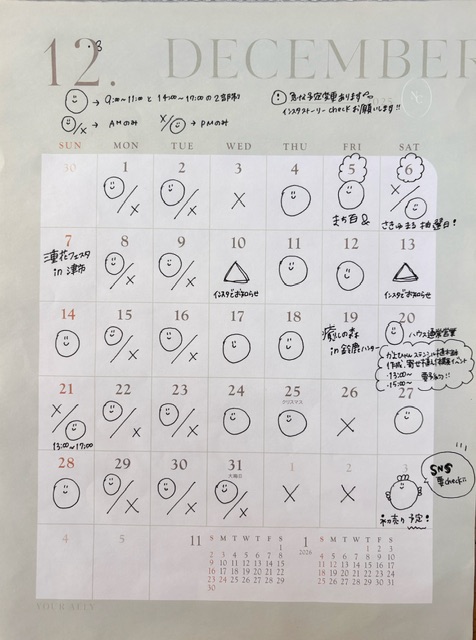 12. DECEMBER
→ 9:00~11:00 と 14:00~17:00の2部制
! 急な予定変更あります
インスタストーリー check お願いします!!
/× → AMのみ ×/ → PMのみ
SUN MON TUE WED THU FRI SAT
30 1 2 3 4 5 6
まち百&
さきゅまる抽選日!
7 8 9 10 11 12 13
連花フェスタ
in 津市
インスタでお知らせ インスタでお知らせ
14 15 16 17 18 19 20
癒しの森
in 鈴鹿ハンター
ハウス通常営業
作成、寄せ植え
・13:00~
・15:00~ 要予約!!
21 22 23 24 25 26 27
クリスマス
13:00~17:00
28 29 30 31 1 2 3
大晦日
SNS
要check!!
初売り予定!
4 5
11
S M T W T F S
1
2 3 4 5 6 7 8
9 10 11 12 13 14 15
16 17 18 19 20 21 22
23 24 25 26 27 28 29
30
1
2026
S M T W T F S
1 2 3
4 5 6 7 8 9 10
11 12 13 14 15 16 17
18 19 20 21 22 23 24
25 26 27 28 29 30 31
YOUR ALLY